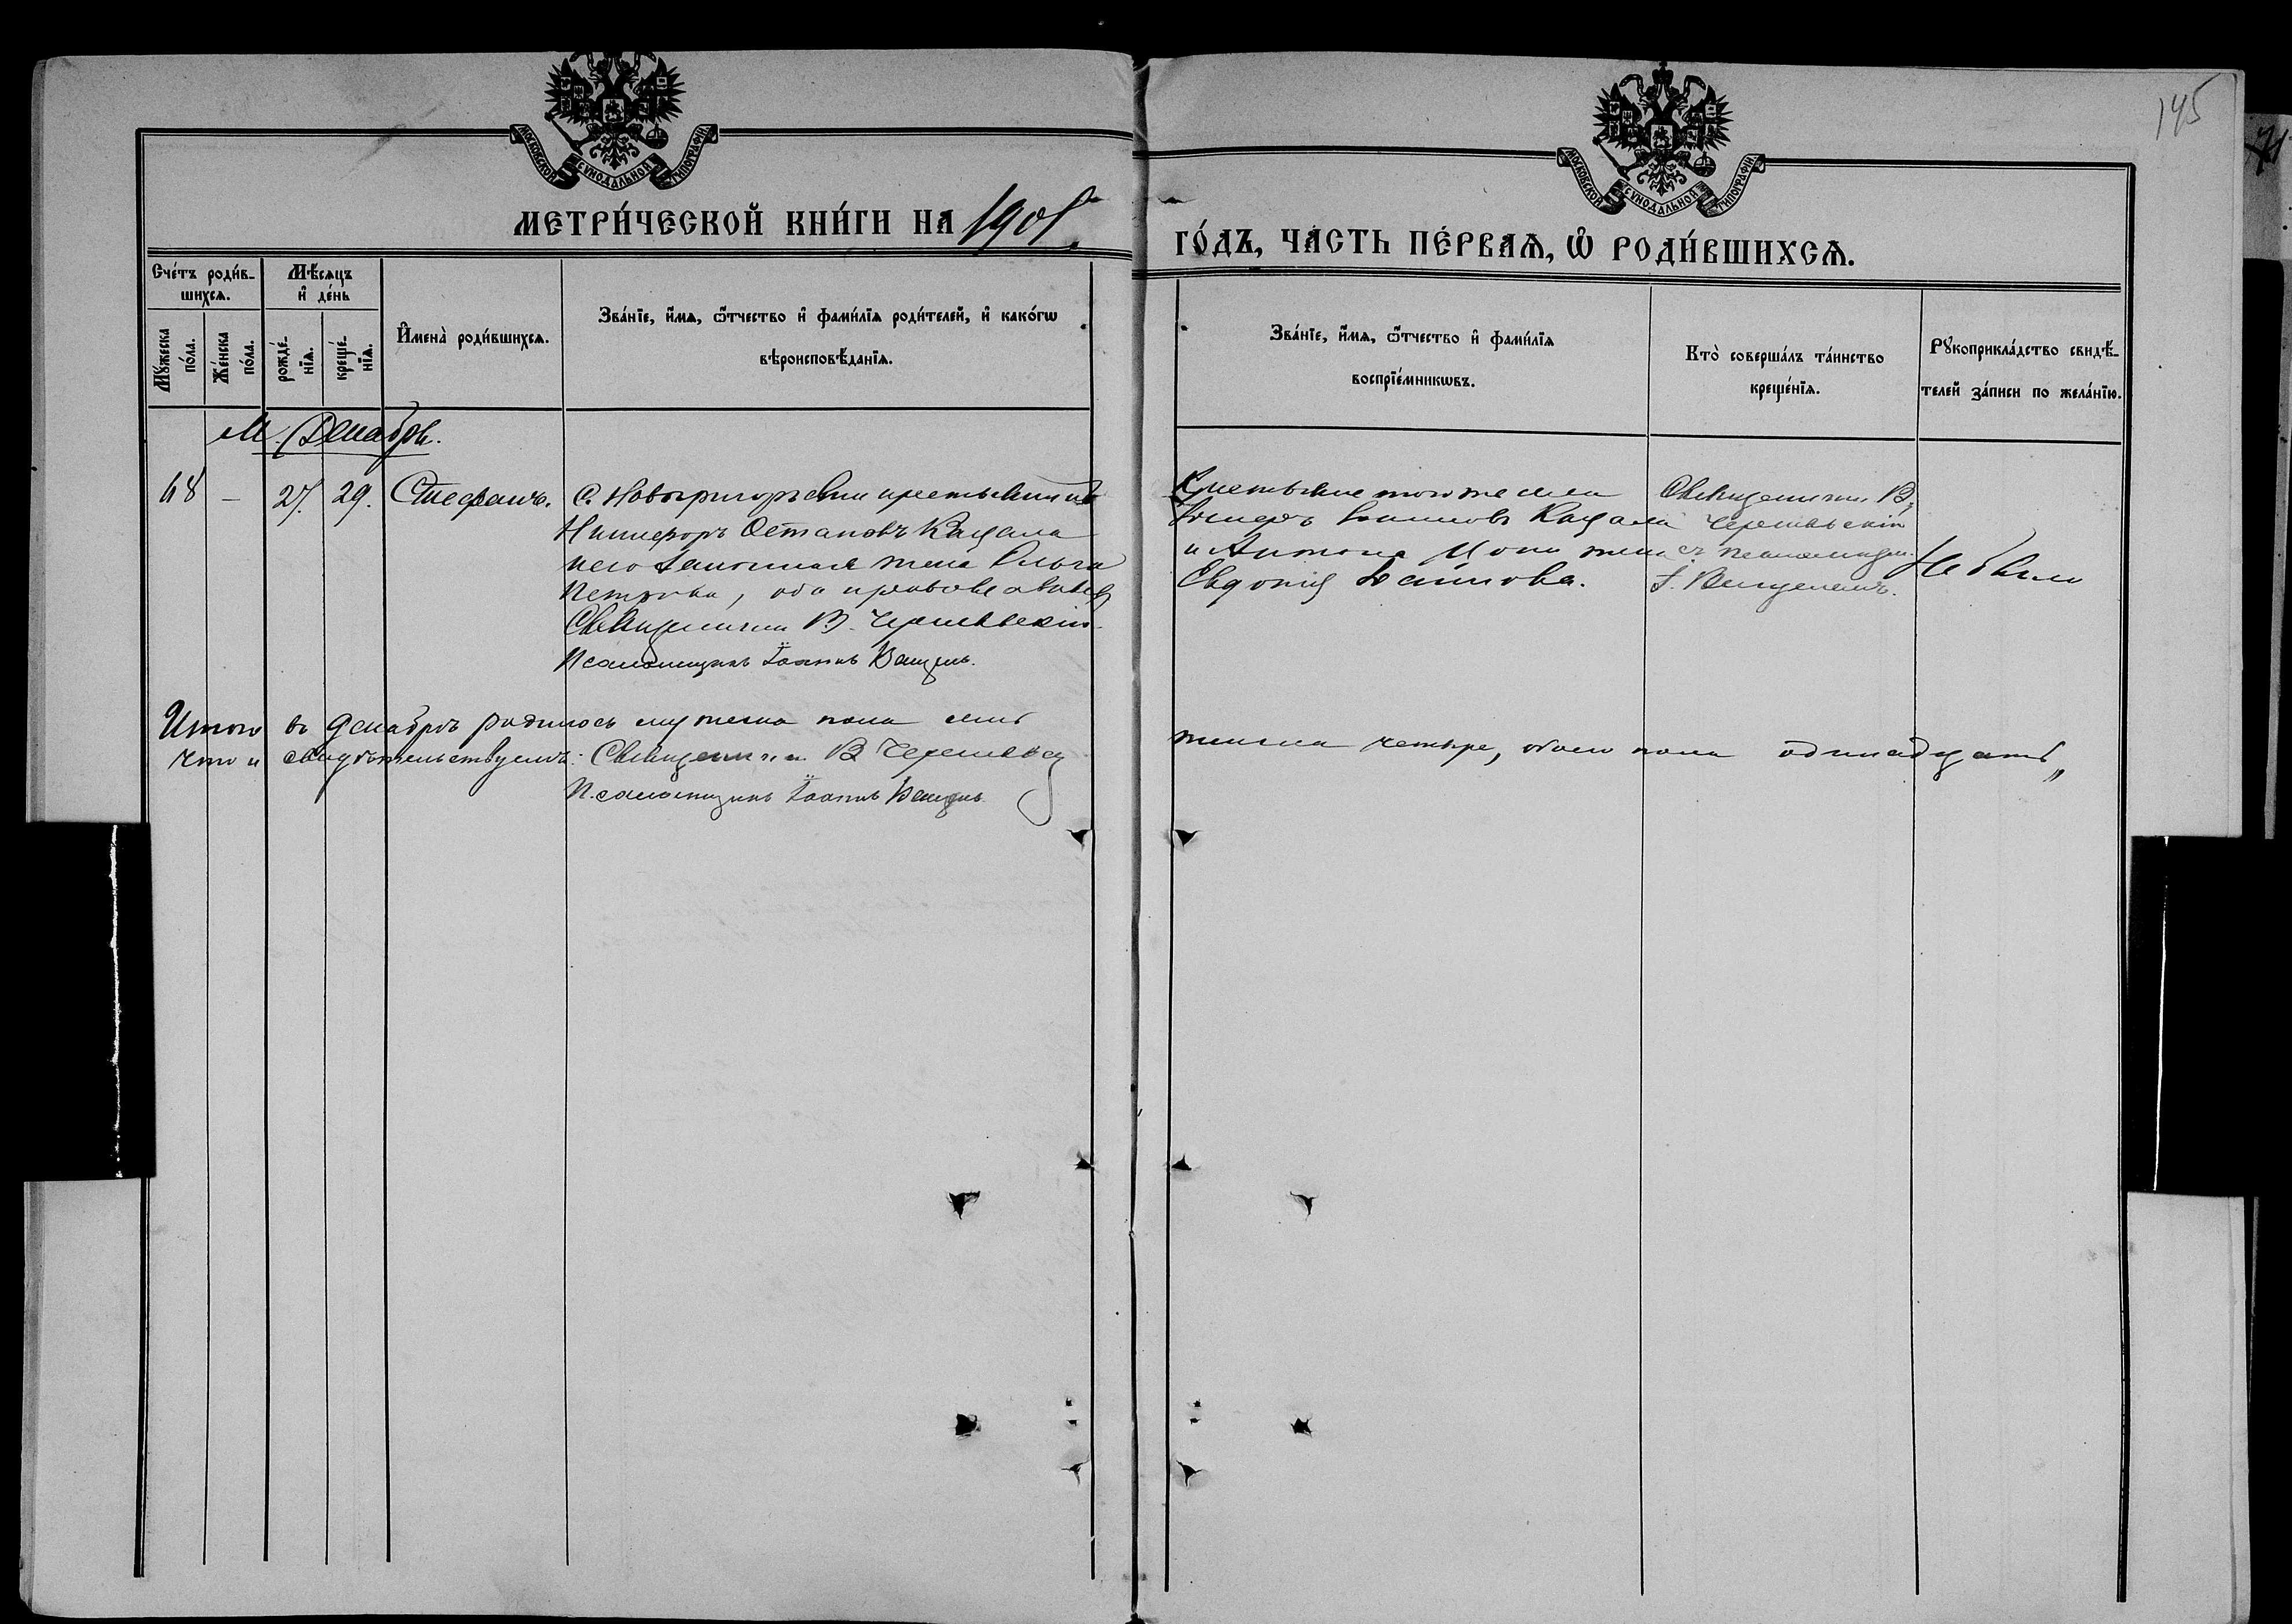 145
МОСКОВСКОЙ СѴНОДАЛЬНОЙ ТИПОГРАФІИ
МОСКОВСКОЙ СѴНОДАЛЬНОЙ ТИПОГРАФІИ
МЕТРИ́ЧЕСКОЙ КНИ́ГИ НА 1901
ГО́ДЪ, ЧА́СТЬ ПЕ́РВАѦ, Ѡ҆ РОДИ́ВШИХСѦ.
Сче́тъ роди́в-
шихсѧ.
Мѣ́сѧцъ
и҆ де́нь
Мꙋ́жеска
по́ла.
Же́нска
по́ла.
рожде́-
нїѧ.
креще́-
нїѧ.
И҆мена̀ роди́вшихсѧ.
Зва́нїе, и҆́мѧ, ѻ҆́тчество и҆ фами́лїѧ роди́телей, и҆ како́гѡ
вѣроисповѣ́данїѧ.
Зва́нїе, и҆́мѧ, ѻ҆́тчество и҆ фами́лїѧ
воспрїе́мникѡвъ.
Кто̀ соверша́лъ та́инство
креще́нїѧ.
Рꙋкоприкла́дство свидѣ́-
телей за́писи по жела́нїю.
М. Декабрь.
48 – 27. 29. Стефанъ.
С. Новогригорьевки крестьянинъ
Никифоръ Остаповъ Кацала
и его законная жена Ольга
Петрова, оба православные
Священникъ В. Черне
Псаломщикъ Іоаннъ
Крестьяне того же села
Кацала
и Антона жена
Евдокія
Священникъ В.
съ псаломщик.
І.
Не было
Итого въ декабрѣ родилось мужеска пола семь
женска четыре, обоего пола одинадцать„
что и свидѣтельствуемъ: Священникъ В
Псаломщикъ Іоаннъ